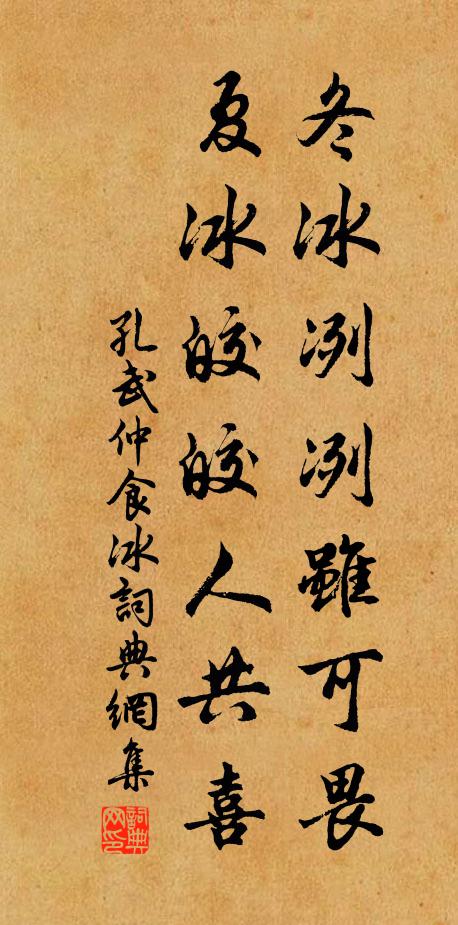 冬冰冽冽雖可畏
夏冰皎皎人共喜
孔武仲食冰詞典網集
詞典网印